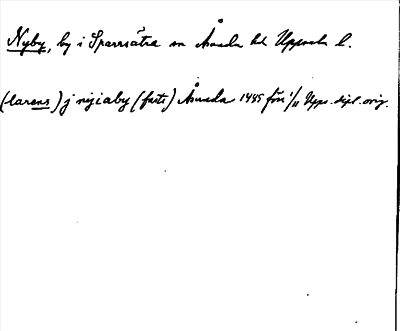 Nyby, by i Sparrsätra sn Åsunda hd Uppsala l.
(larens) j nyiaby (farts) Åsunda 1445 före 1/11 Upps. dipl. orig.